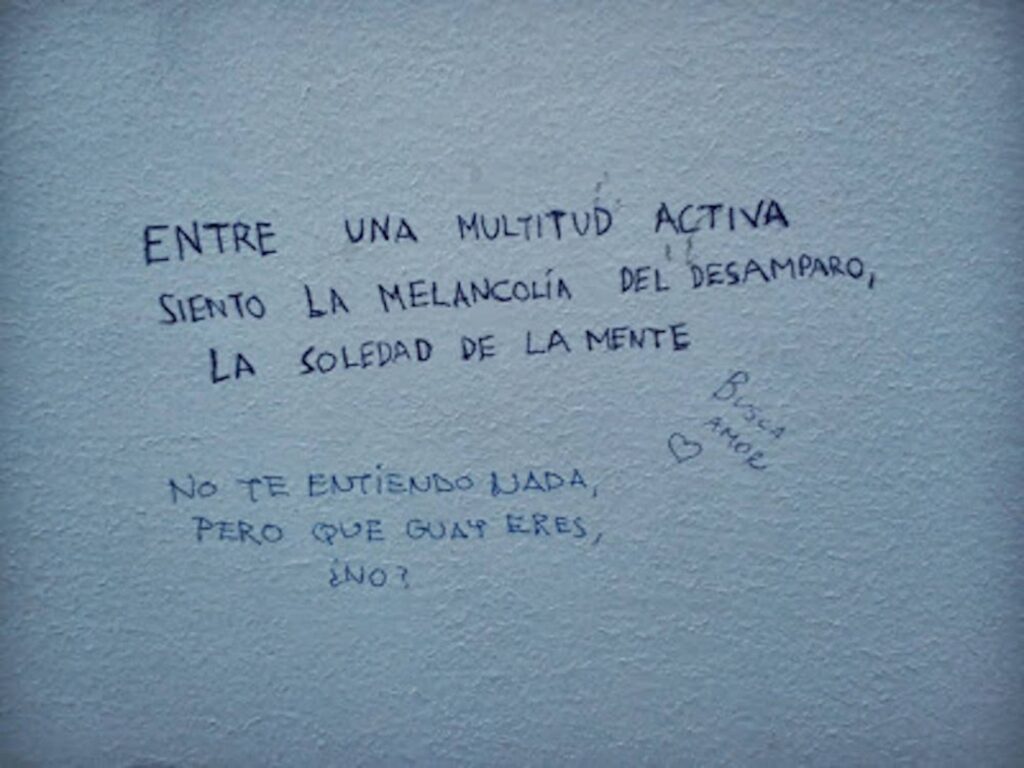 ENTRE UNA MULTITUD ACTIVA
SIENTO LA MELANCOLÍA DEL DESAMPARO,
LA SOLEDAD DE LA MENTE
BUSCA
AMOR
NO TE ENTIENDO NADA,
PERO QUE GUAY ERES,
¿NO?